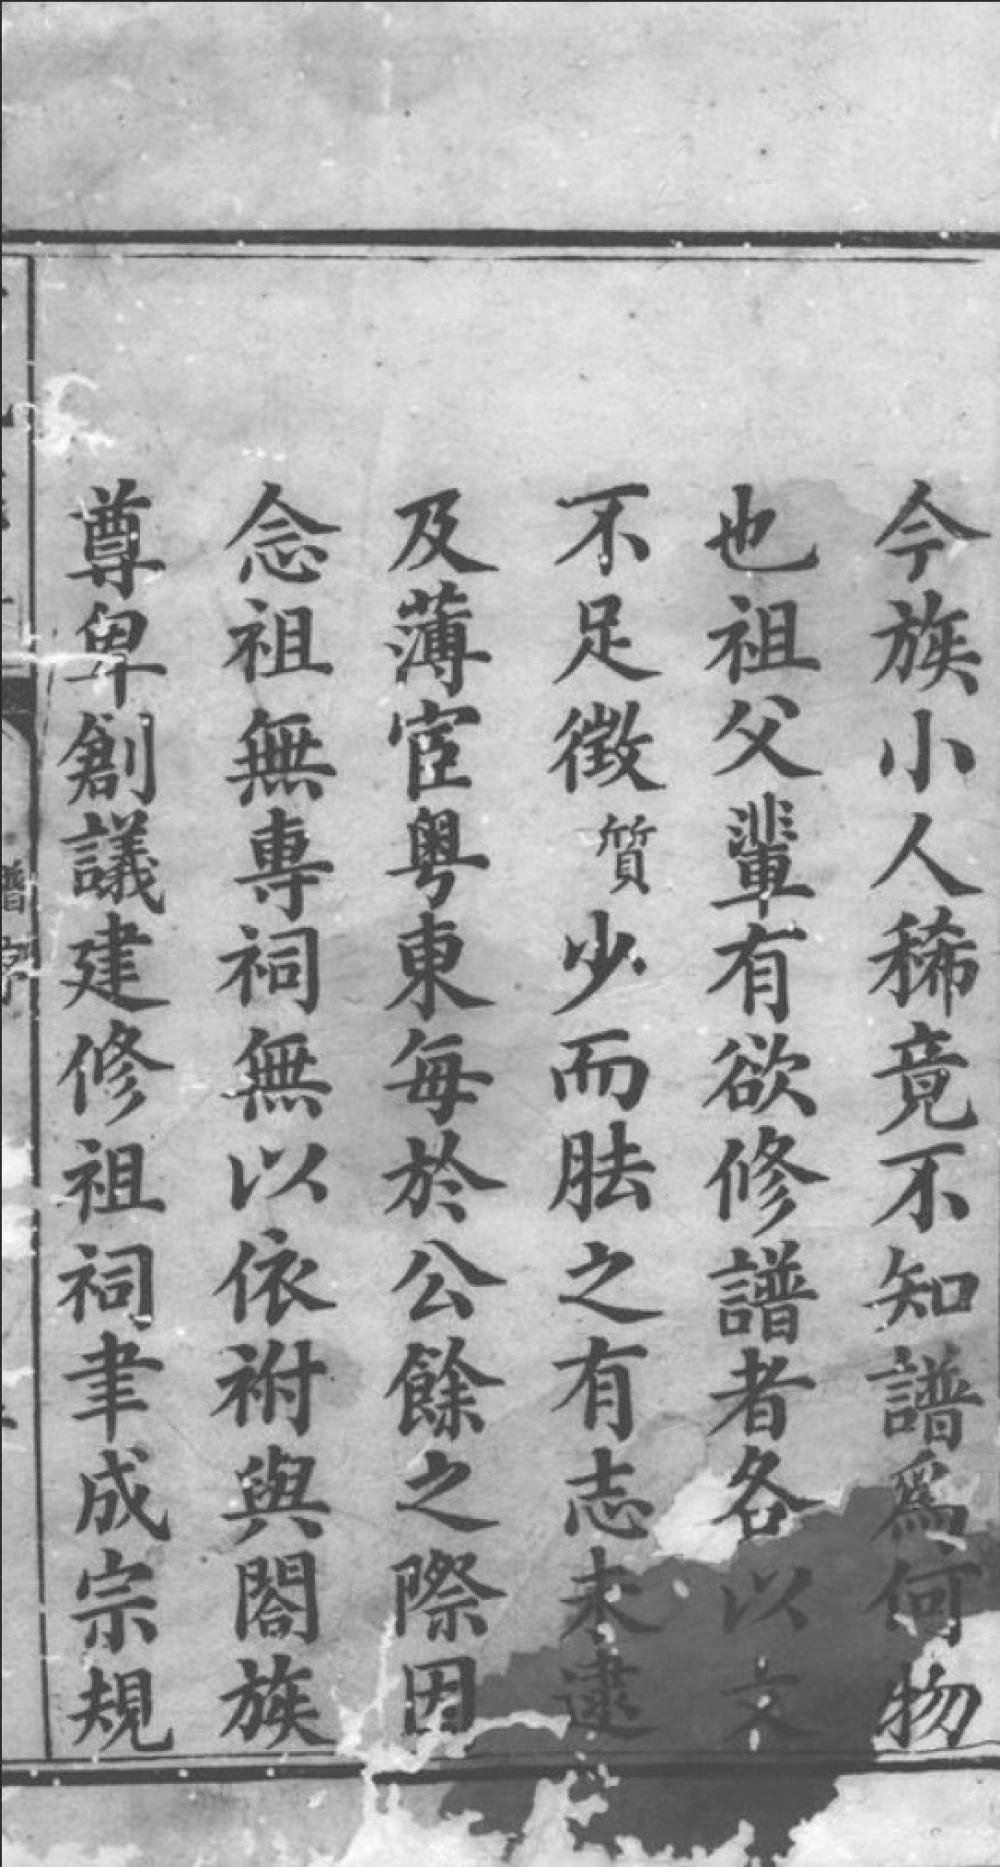 今族小人稀竟不知譜爲何物
也祖父輩有欲修譜者各以文
不足徵質少而胠之有志未逮
及薄宦粵東每於公餘之際因
念祖無專祠無以依祔與閤族
尊卑創議建修祖祠聿成宗規
譜序